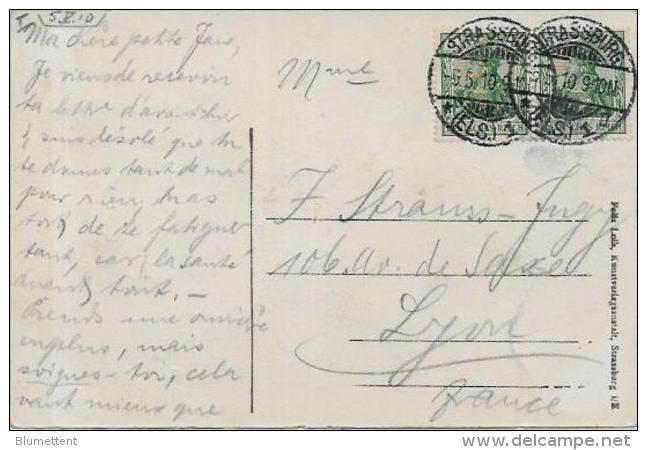 5.V.10
Ma chère petite Jane,
Je viens de recevoir
ta lettre d'avant hier
suis désolé que tu
te donnes tant de mal
pour rien, tu as
tort de te fatiguer
tant, car la santé
avant tout. —
Prends une ouvrière
en plus, mais
soignes-toi, cela
vaut mieux que
Mme
F. Strauss-
106. Av. de Saxe
Lyon
France
STRASSBURG
5.5.10.9-10N.
* (ELS.) 1
STRASSBURG
5.5.10.9-10N.
* (ELS.) 1
REICH
REICH
Kunstverlagsanstalt, Strassburg i/E
Blumettent
delcampe.net